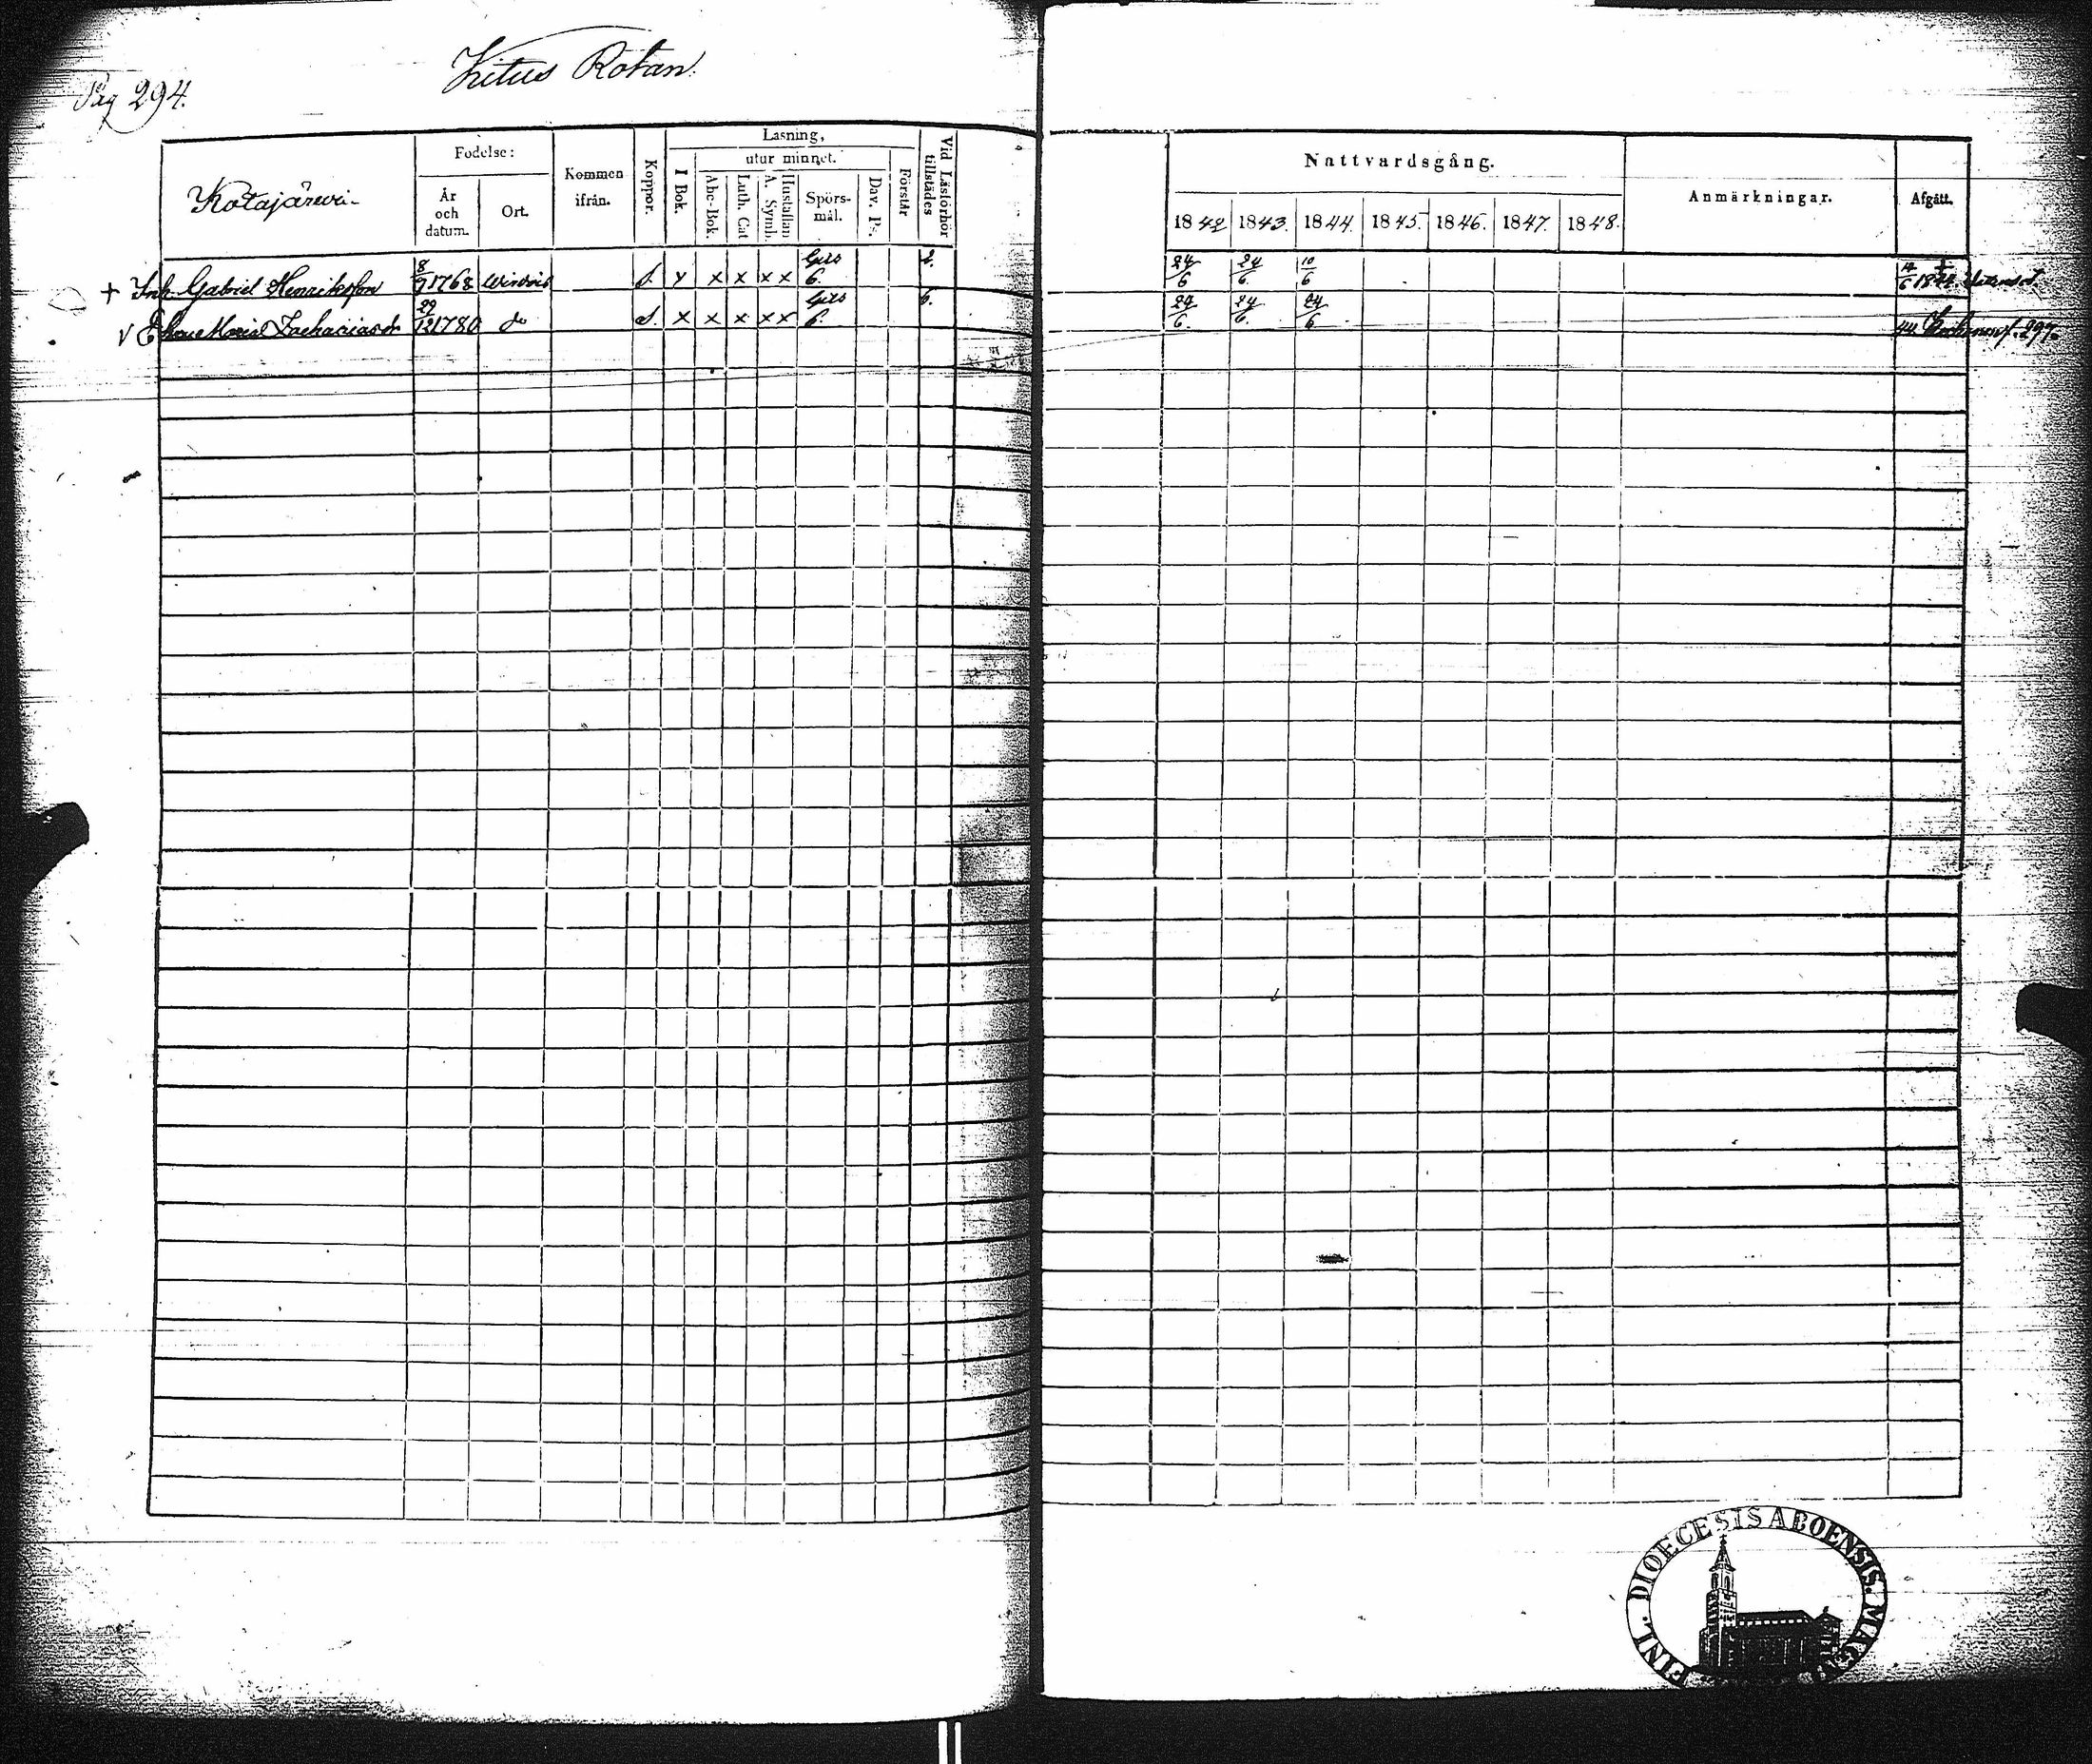 Pag 294.
Kitus Rotan.
Kotajärwi.
Födelse:
År och datum.
Ort.
Kommen ifrån.
Koppor.
Läsning,
I Bok.
utur minnet.
Abc-Bok.
Luth. Cat
A. Symb.
Hustaflan
Spörsmål.
Dav. Ps.
Förstår
Vid Läsförhör tillstädes
Nattvardsgång.
1842 1843. 1844. 1845. 1846. 1847. 1848.
Anmärkningar.
Afgått.
+ Inh. Gabriel Henriksson 8/9 1768 x x x x 6. 24/6 24/6. 10/6 + 1844.
v E. Maria Zachariasdr 29/12 1780 do x x x x x 6. 6. 24/6. 24/6. 24/6. 297.
FINL. DIOECESIS ABOENSIS.